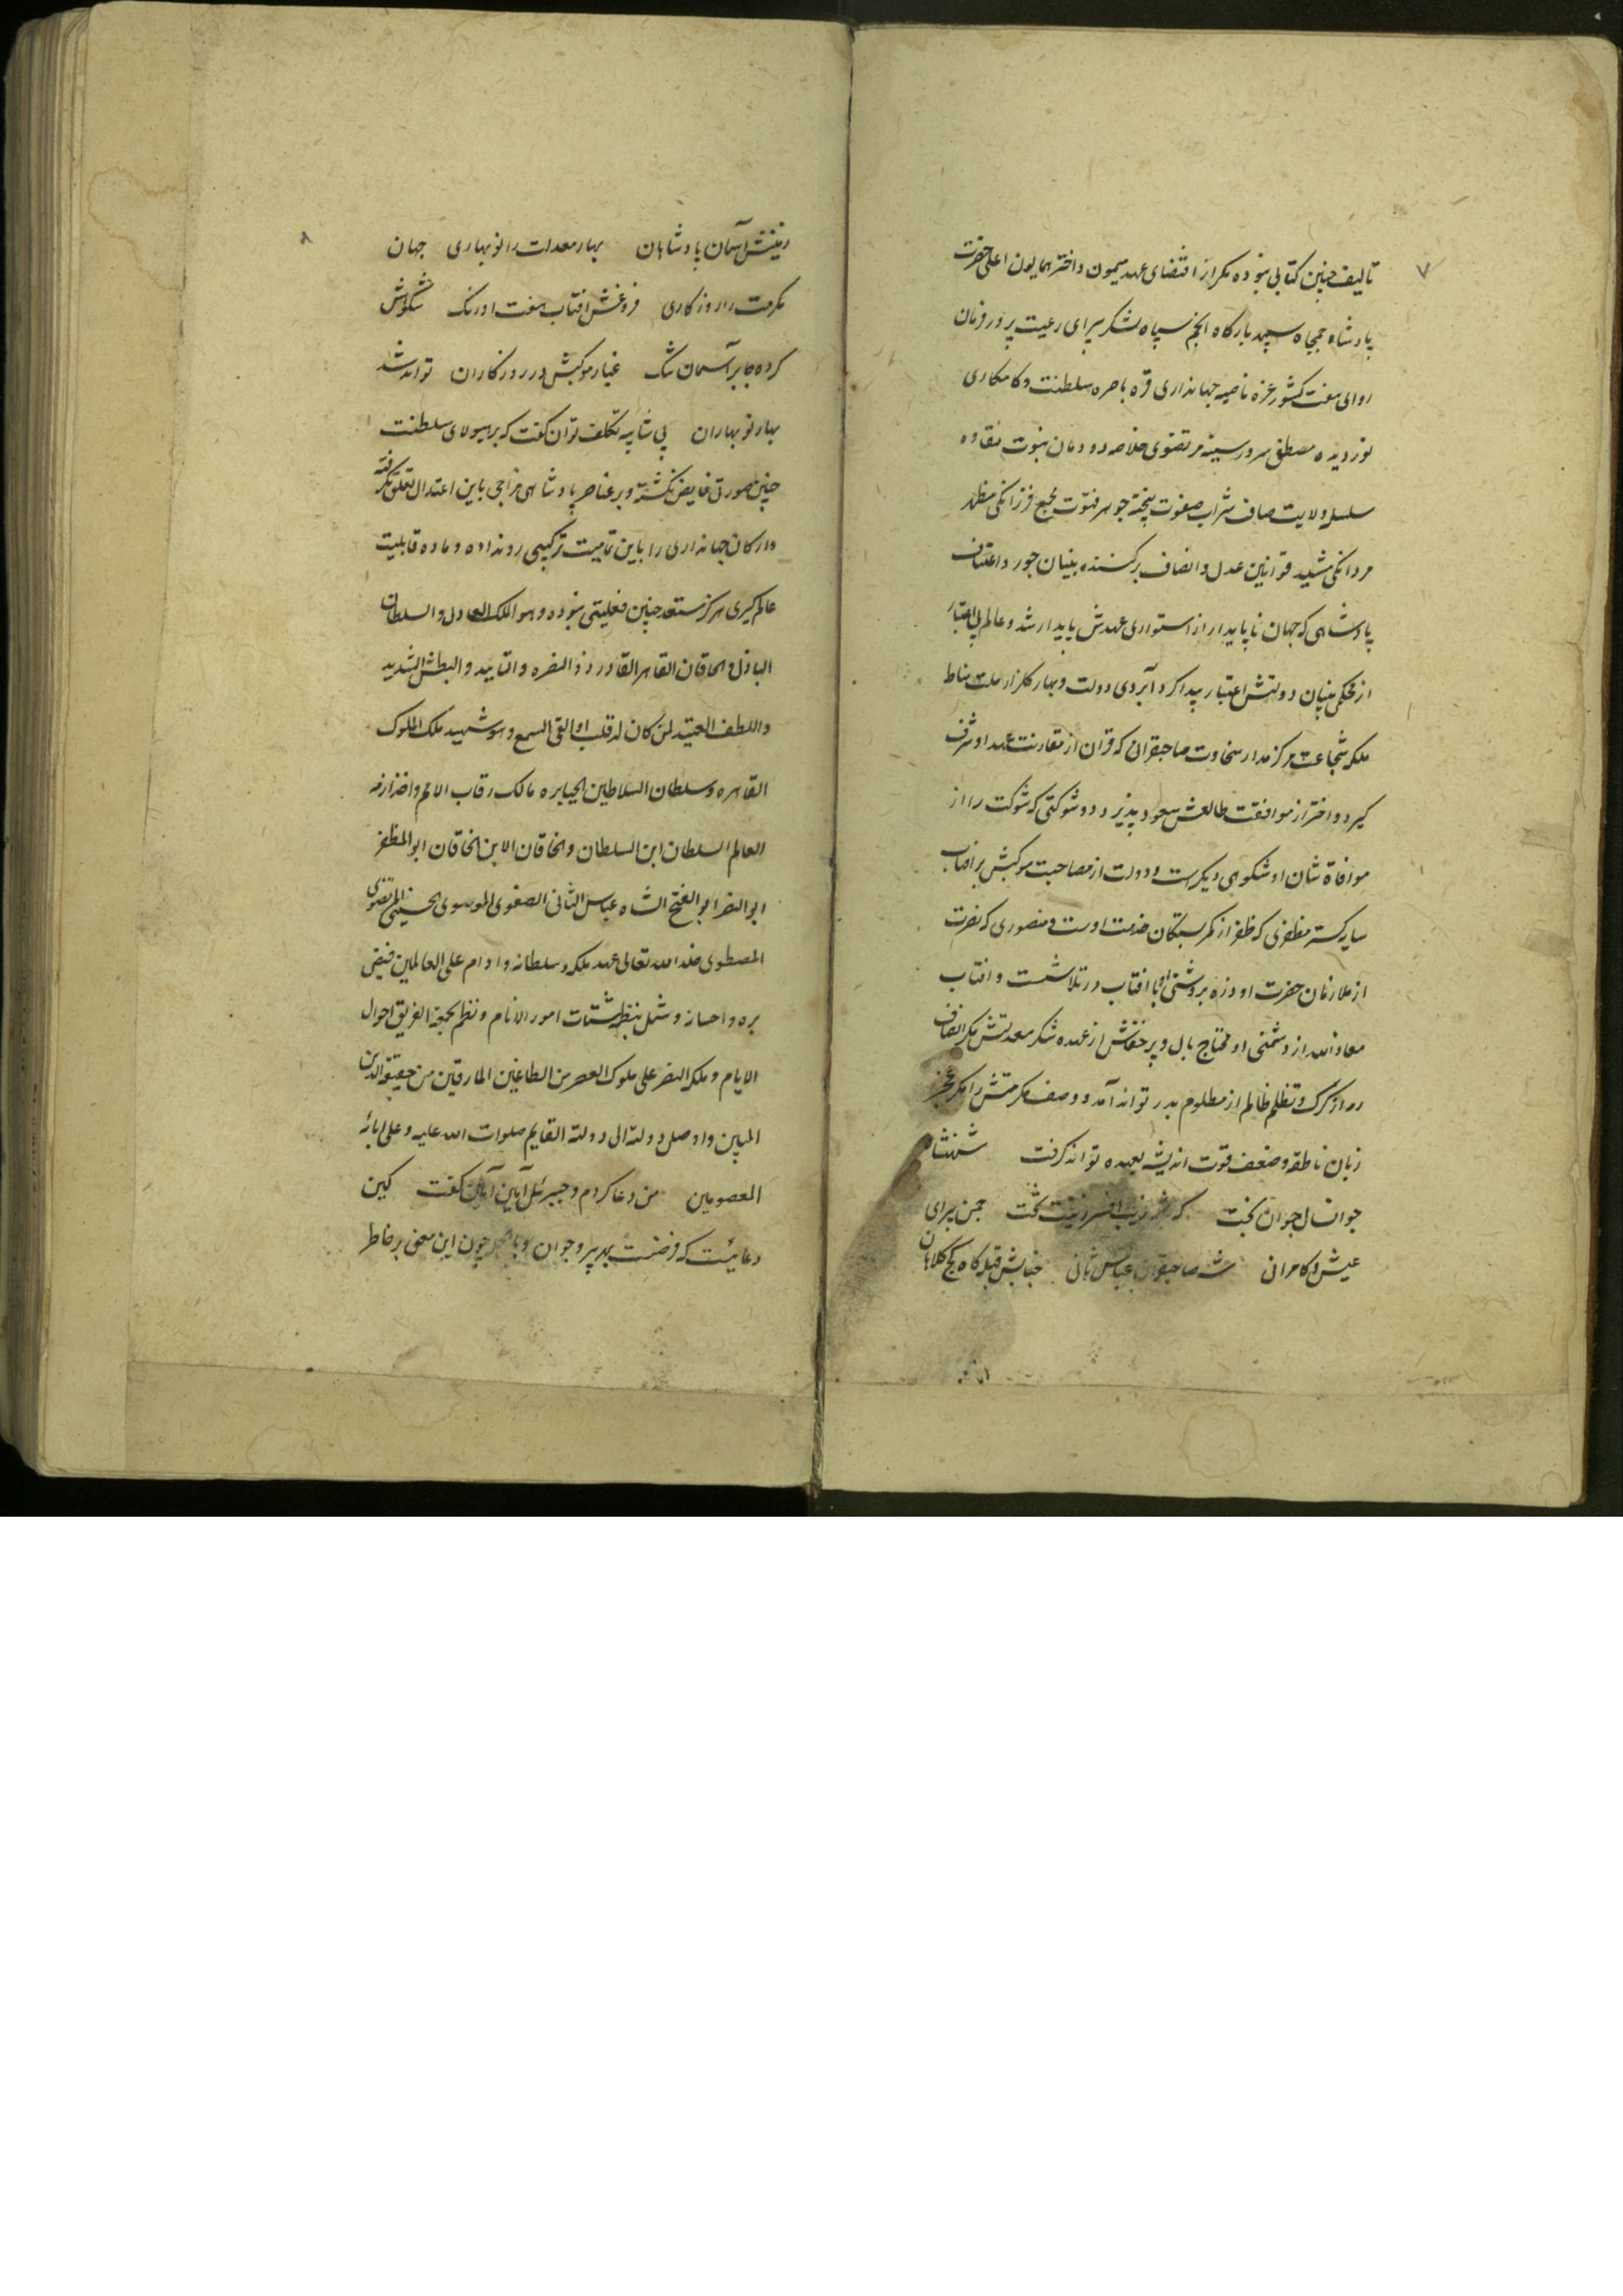 ۷
تالیف چنین کتابی نبوده مکر از اقتضای عهد میمون و اختر همایون اعلی حضرت
پادشاه جمجاه سپهر بارکاه انجم سپاه لشکر پیرای رعیت پرور فرمان
روای هفت کشور غره ناصیه جهانداری قره باصره سلطنت و کامکاری
نور دیده مصطفوی سرور سینه مرتضوی خلاصه دودمان نبوت نقاوه
سلسله ولایت صاف شراب صفوت پخته جوهر فتوت مجمع فرزانکی مظهر
مردانکی مشید قوانین عدل و انصاف برکننده بنیان جور و اعتساف
پادشاهی که جهان ناپایدار از استواری عهدش پایدار شد و عالم بی اعتبار
از محکمی بنیان دولتش اعتبار پیدا کرد آبروی دولت و بهار کلزار ملت مناط
ملکه شجاعت مرکز مدار سخاوت صاحبقرانی که قران از مقارنت عهد او شرف
کیرد و اختر از موافقت طالعش سعود پذیرد و ذو شوکتی که شوکت را از
موافاة شان او شکوهی دیکرست و دولت از مصاحبت موکبش بر افتاب
سایه کستر مظفری که ظفر از کمر بستکان خدمت اوست و منصوری که نصرت
از ملازمان حضرت او ذره بروشنی او با افتاب در تلاشست و افتاب
معاذ الله از دشمنی او محتاج بال و پر خفاش از عهده شکر معدلتش مکر انصاف
رمه از کرک و تظلم ظالم از مظلوم بدر تواند آمد و وصف مکرمتش را مکر عجز
زبان ناطقه و ضعف قوت اندیشه بعهده تواند کرفت شهنشاه
جوانسال جوان بخت که شد زیب افسر و زینت تخت چمن پیرای
عیش و کامرانی شه صاحبقران عباس ثانی جنابش قبله کاه کج کلاهان
۸
زمینش آسمان پادشاهان بهار معدلت را نوبهاری جهان
مکرمت را روزکاری فروغش افتاب هفت اورنک شکوهش
کرده جا بر آسمان تنک غبار موکبش در روزکاران تواند شد
بهار نوبهاران بی شایبه تکلف توان کفت که بر هیولای سلطنت
چنین صورتی فایض نکشته و بر عناصر پادشاهی مزاجی باین اعتدال تعلق نکرفته
و ارکان جهانداری را باین تمامیت ترکیبی رو نداده و ماده قابلیت
عالم کیری هرکز مستعد چنین فعلیتی نبوده و هو الملک العادل و السلطان
الباذل و الخاقان القاهر القادر ذو النصره و التایید و البطش الشدید
و اللطف العتید لمن کان له قلب او القی السمع و هو شهید ملک الملوک
القاهره و سلطان السلاطین الجبابره مالک رقاب الامم و اخذ ازمه
العالم السلطان ابن السلطان و الخاقان الابن الخاقان ابو المظفر
ابو النصر ابو الفتح الشاه عباس الثانی الصفوی الموسوی الحسینی المرتضوی
المصطوی خلد الله تعالی عهد ملکه و سلطانه و ادام علی العالمین فیض
بره و احسانه و شمل بنظره شتات امور الانام و نظم بحجته الغریق احوال
الایام و ملکه النصر علی ملوک العصر من الطاغین المارقین من حقیقة الدین
المبین و اوصل دولته الی دولة القایم صلوات الله علیه و علی ابائه
المعصومین من دعا کردم و جبرئیل آمین آمین کفت کین
دعائیست که فرضست بهر پیر و جوان و چون این معنی بر خاطر